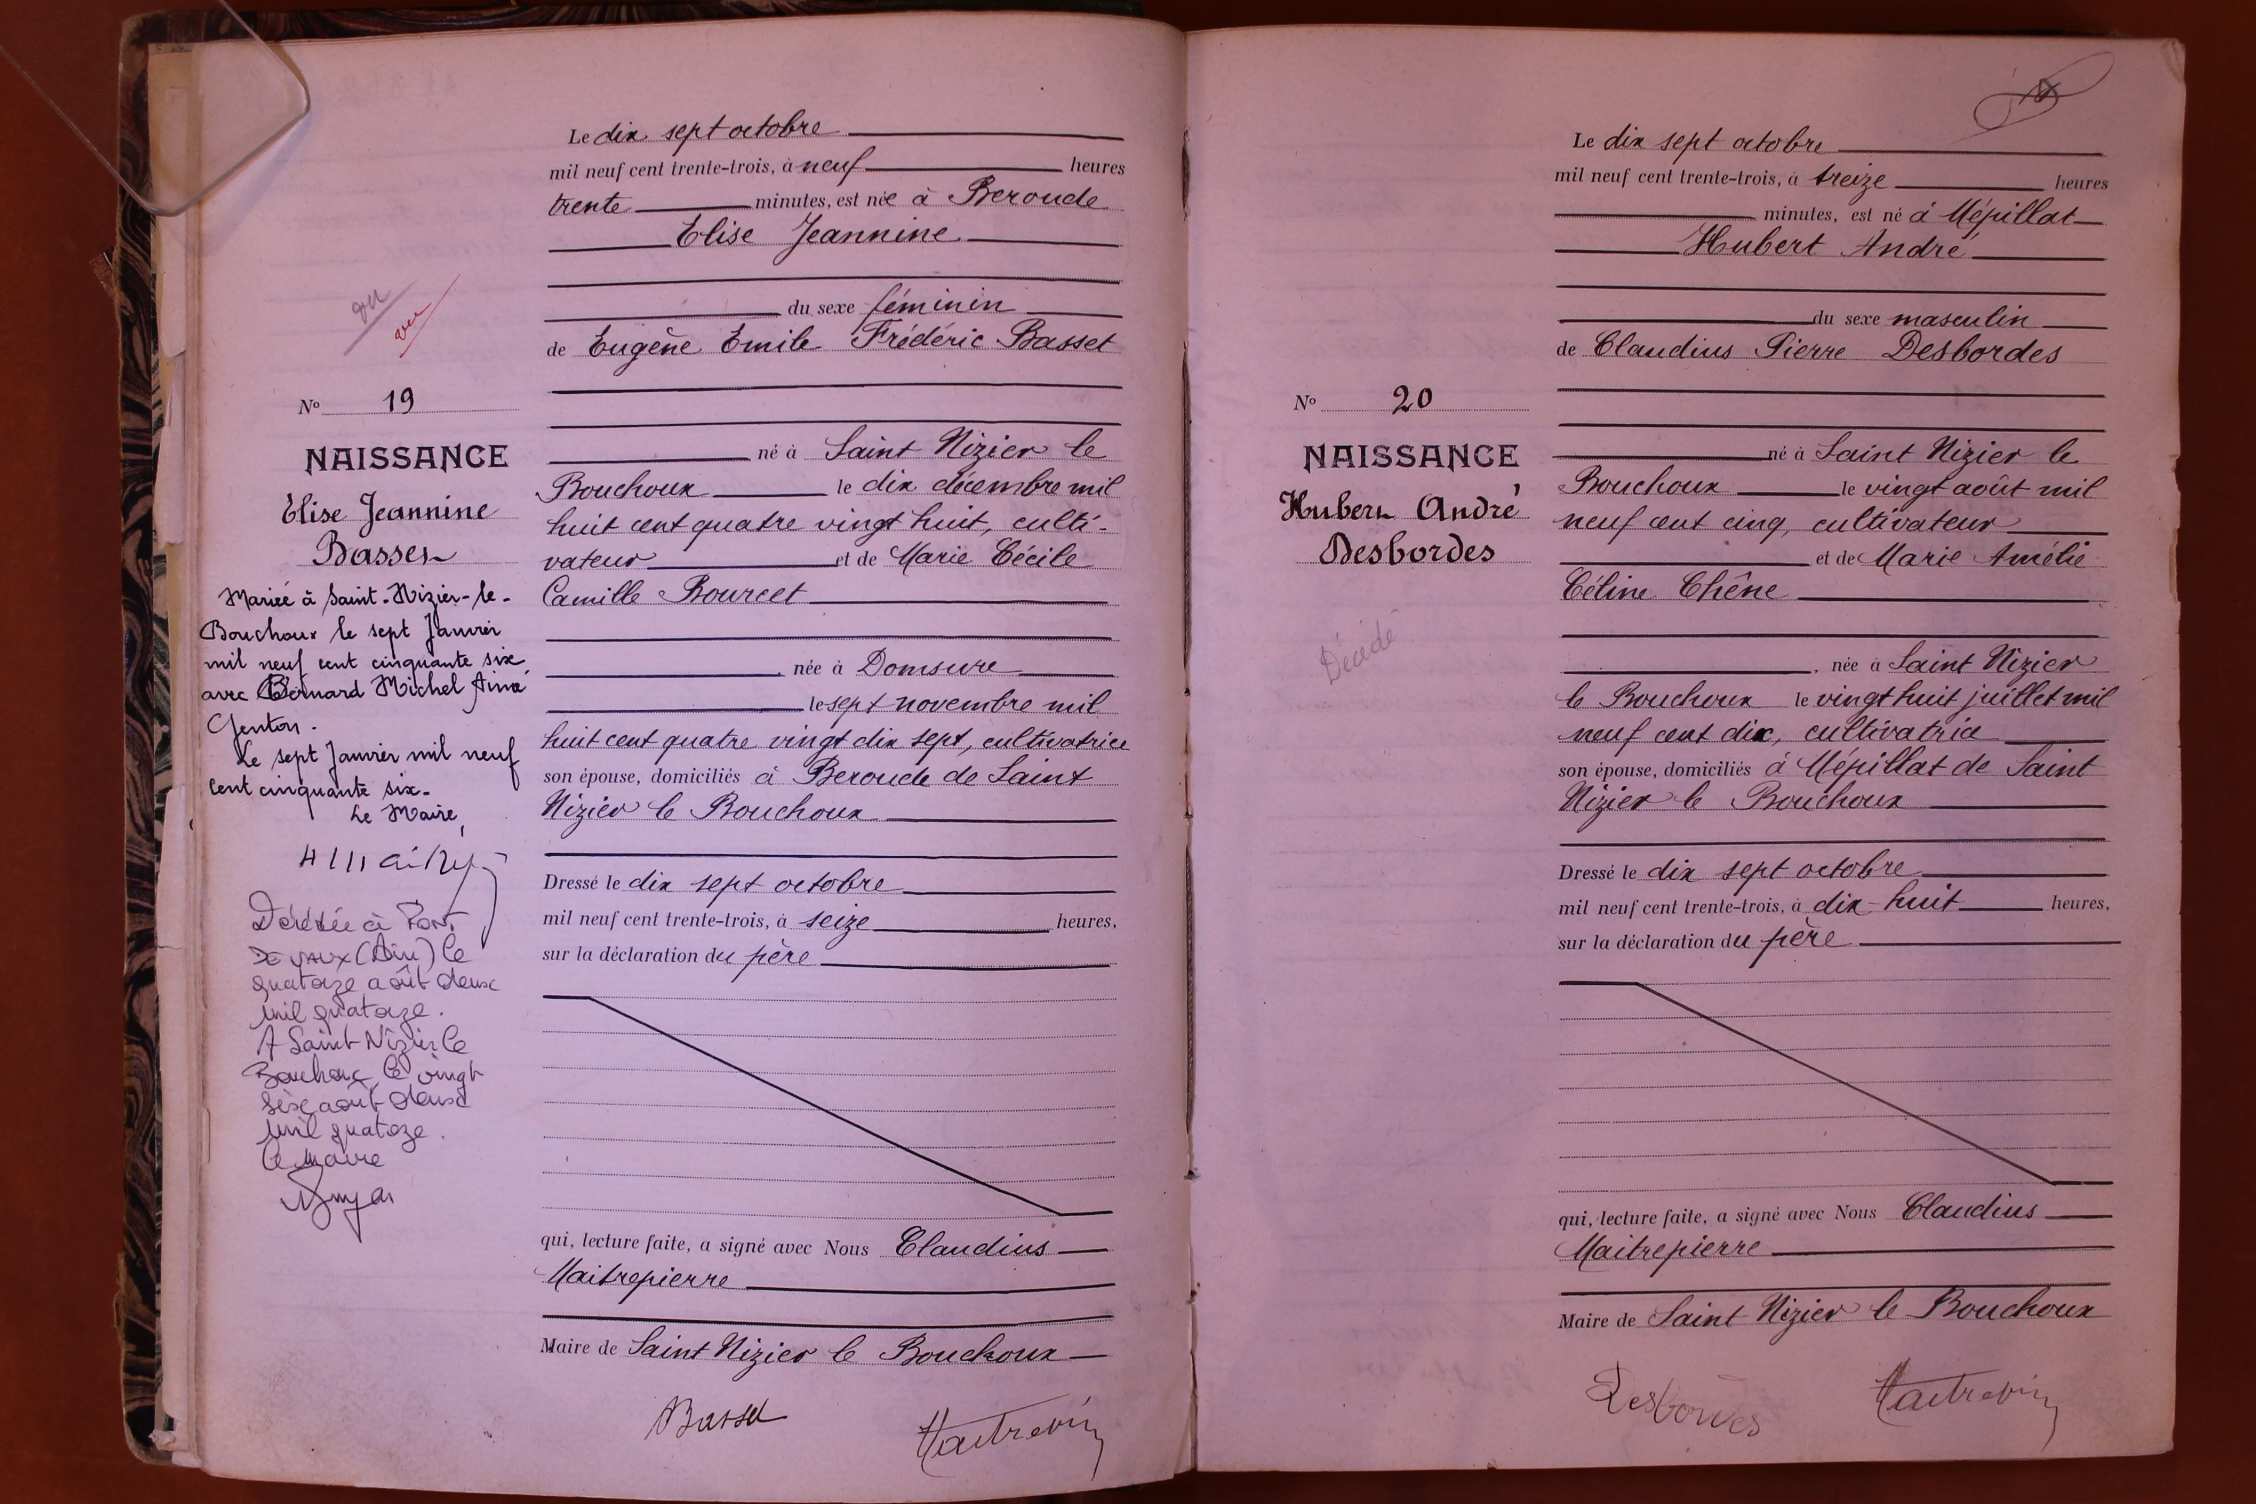 vu
vu
N° 19
NAISSANCE
Elise Jeannine
Basset
Mariée à Saint-Nizier-le-
Bouchoux le sept Janvier
mil neuf cent cinquante six
avec Bernard Michel Aimé
Genton.
Le sept Janvier mil neuf
cent cinquante six.
Le Maire,
Décédée à Pont
DE VAUX (Ain) le
quatorze août deux
mil quatorze.
A Saint Nizier le
Bouchoux le vingt
seize août deux
mil quatorze.
Le Maire
Le dix sept octobre
mil neuf cent trente-trois, à neuf heures
trente minutes, est née à Beroude
Elise Jeannine
du sexe féminin
de Eugène Emile Frédéric Basset
né à Saint Nizier le
Bouchoux le dix décembre mil
huit cent quatre vingt huit, culti-
vateur et de Marie Cécile
Camille Bourcet
née à Domsure
le sept novembre mil
huit cent quatre vingt dix sept, cultivatrice
son épouse, domiciliés à Beroude de Saint
Nizier le Bouchoux
Dressé le dix sept octobre
mil neuf cent trente-trois, à seize heures,
sur la déclaration du père
qui, lecture faite, a signé avec Nous Claudius
Maitrepierre
Maire de Saint Nizier le Bouchoux
Basset
N° 20
NAISSANCE
Hubert André
Desbordes
Décédé
Le dix sept octobre
mil neuf cent trente-trois, à treize heures
minutes, est né à Mépillat
Hubert André
du sexe masculin
de Claudius Pierre Desbordes
né à Saint Nizier le
Bouchoux le vingt août mil
neuf cent cinq, cultivateur
et de Marie Amélie
Céline Chêne
née à Saint Nizier
le Bouchoux le vingt huit juillet mil
neuf cent dix, cultivatrice
son épouse, domiciliés à Mépillat de Saint
Nizier le Bouchoux
Dressé le dix sept octobre
mil neuf cent trente-trois, à dix-huit heures,
sur la déclaration du père
qui, lecture faite, a signé avec Nous Claudius
Maitrepierre
Maire de Saint Nizier le Bouchoux
Desbordes